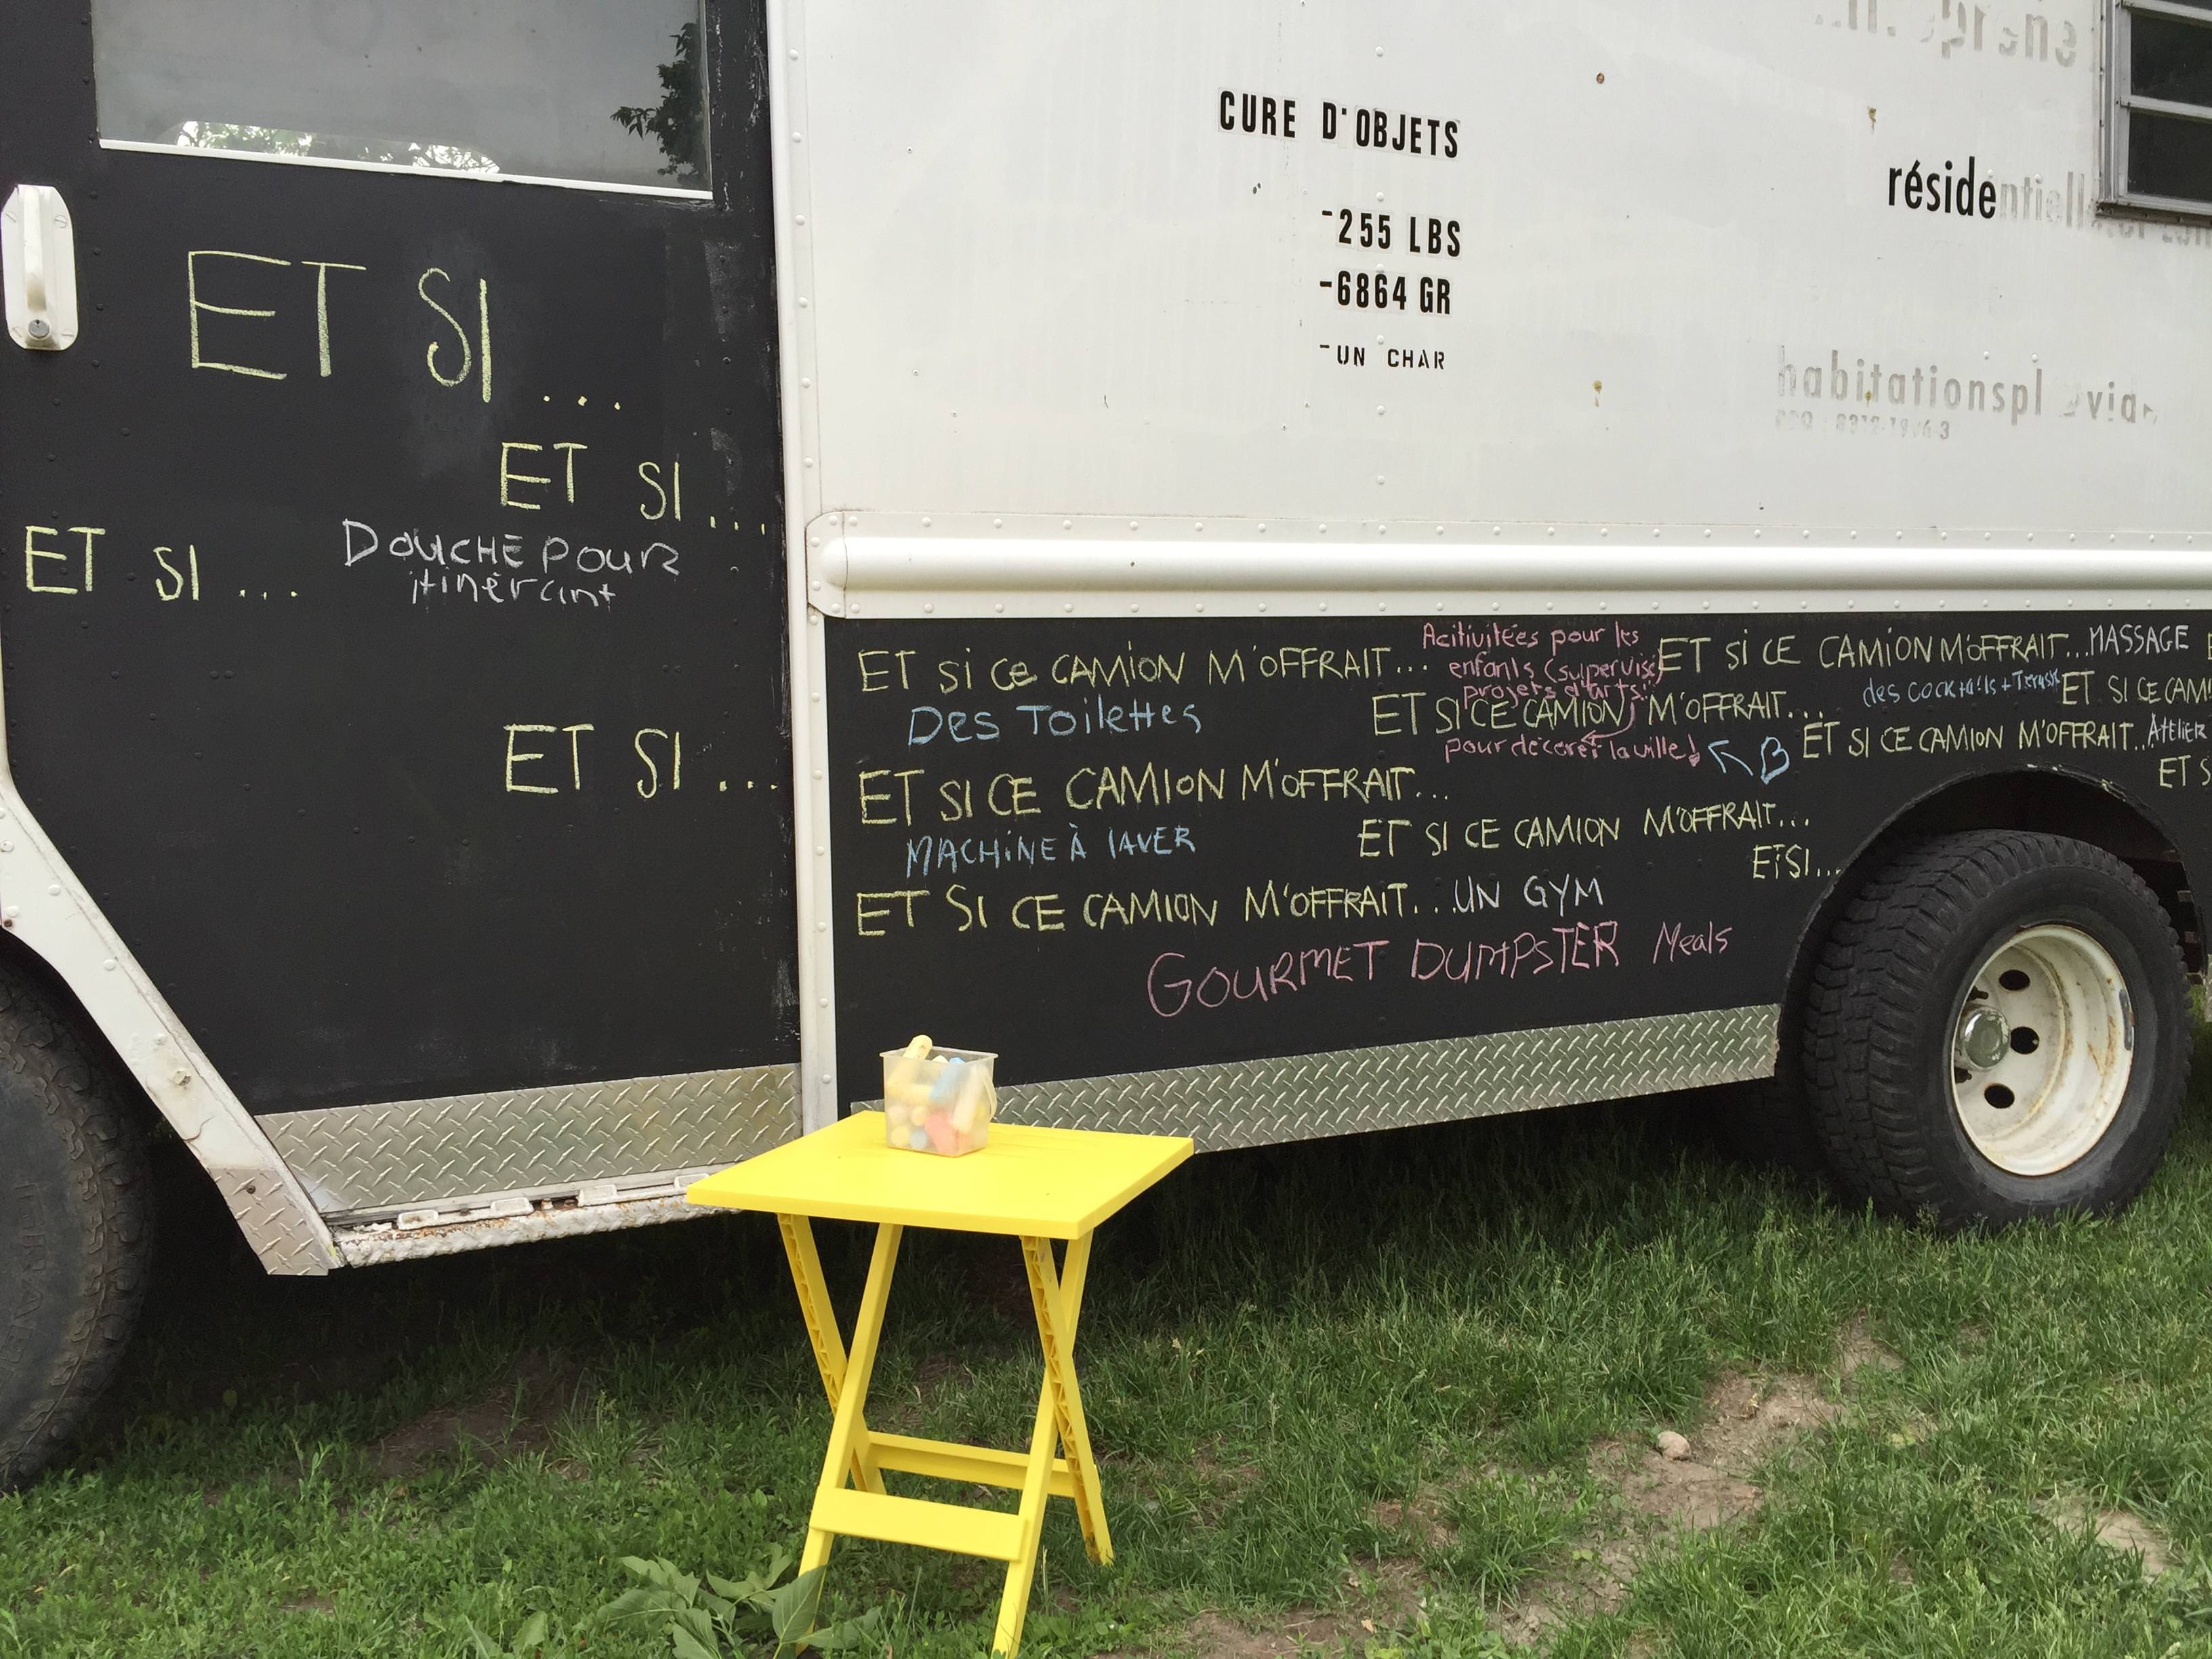 CURE D'OBJETS
-255 LBS
-6864 GR
-UN CHAR
réside
habitations
ET SI...
ET SI...
ET SI... DOUCHE POUR
itinérant
ET SI...
ET Si Ce CAMION M'OFFRAIT...
Des Toilettes
Acitivitées pour les
enfants (supervisé)
projets d'arts
ET SI CE CAMION M'OFFRAIT...
pour décorer la ville!
ET Si CE CAMION M'OFFRAIT...MASSAGE
des cocktails + Terasse
ET SI CE CAM
ET SI CE CAMION M'OFFRAIT...Atelier
ET S
ET SI CE CAMION M'OFFRAIT...
MACHiNE À lAVER
ET SI CE CAMION M'OFFRAIT...
ET SI...
ET SI CE CAMION M'OFFRAIT...UN GYM
GOURMET DUMPSTER Meals